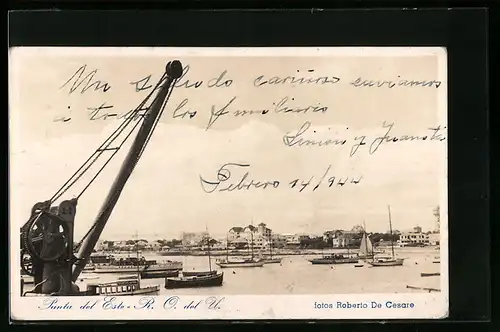 Un saludo cariñoso enviamos
a todos los familiares
Simon y Juanita
Febrero 14/944
Punta del Este - R. O. del U.
fotos Roberto De Cesare